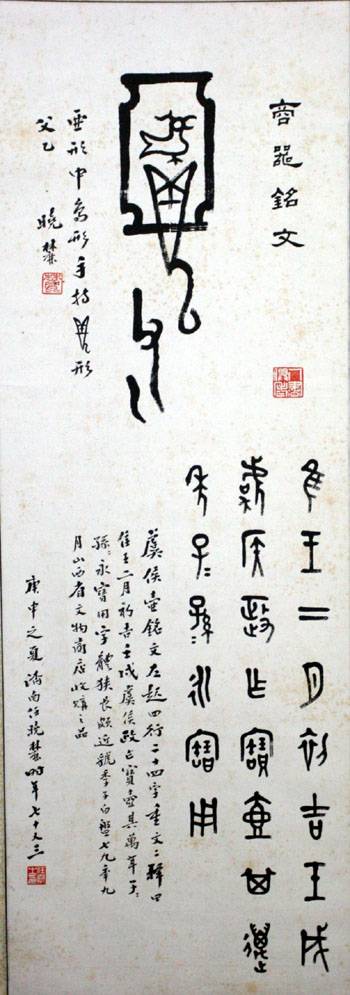 商器銘文
父乙 曉麓
隹王二月初吉壬戌
虞侯政乍寶壺其邁
年子=孫=永寶用
虞侯壺銘文左起四行二十四字重文二釋曰
隹王二月初吉壬戌虞侯政乍寶壺其萬年子=
孫=永寶用字體狹長頗近虢季子白盤七九年九
月山西省文物商店收購之品
庚申之夏濟南任曉麓時年七十又三